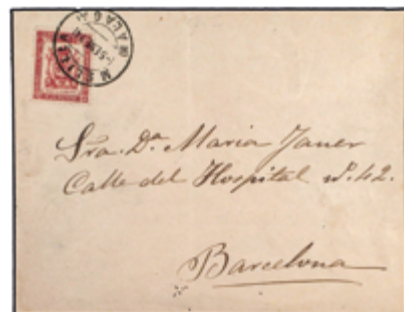 MELILLA
MALAGA
Sra. Dª Maria Janer
Calle del Hospital nº. 42.
Barcelona